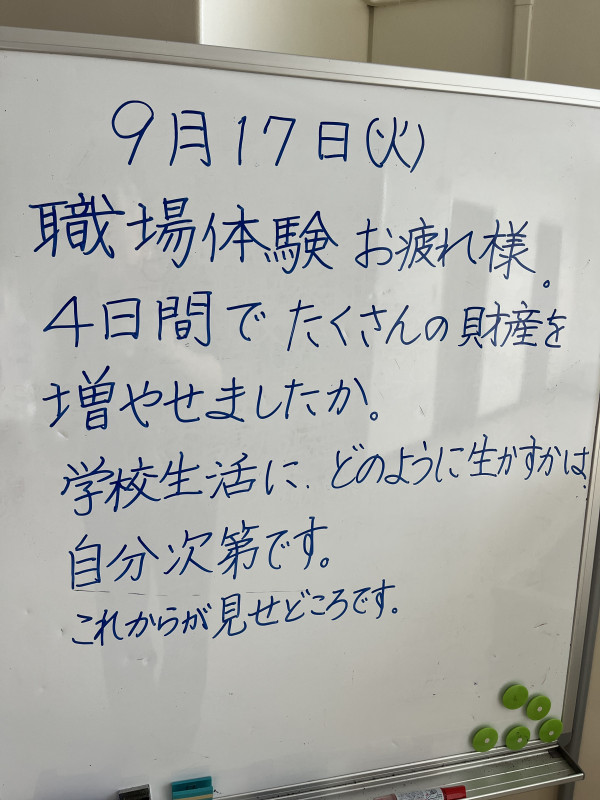 9月17日(火)
職場体験 お疲れ様。
4日間で たくさんの財産を
増やせましたか。
学校生活に、どのように生かすかは、
自分次第です。
これからが見せどころです。